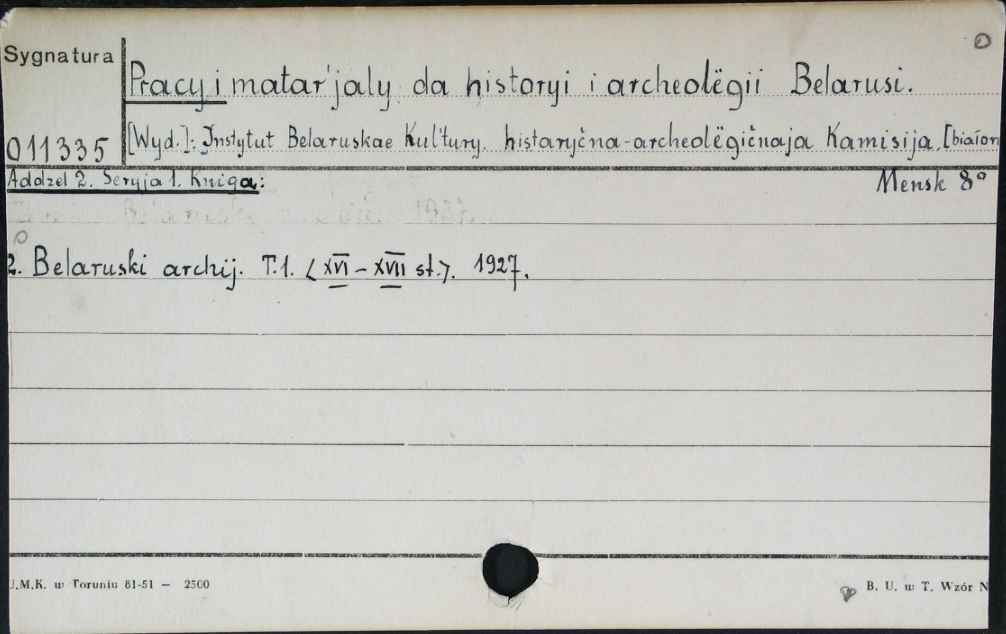 Sygnatura
Pracy i matar'jaly da historyi i archeolëgii Belarusi.
011335
[Wyd.]: Instytut Belaruskae Kul'tury. histaryčna-archeolëgičnaja Kamisija, [białor
Addzel 2. Seryja 1. Kniga:
Mensk 8°
2. Belaruski archij. T.1. <XVI - XVII st.>. 1927.
U.M.K. w Toruniu 81-51 — 2500
B. U. w T. Wzór N